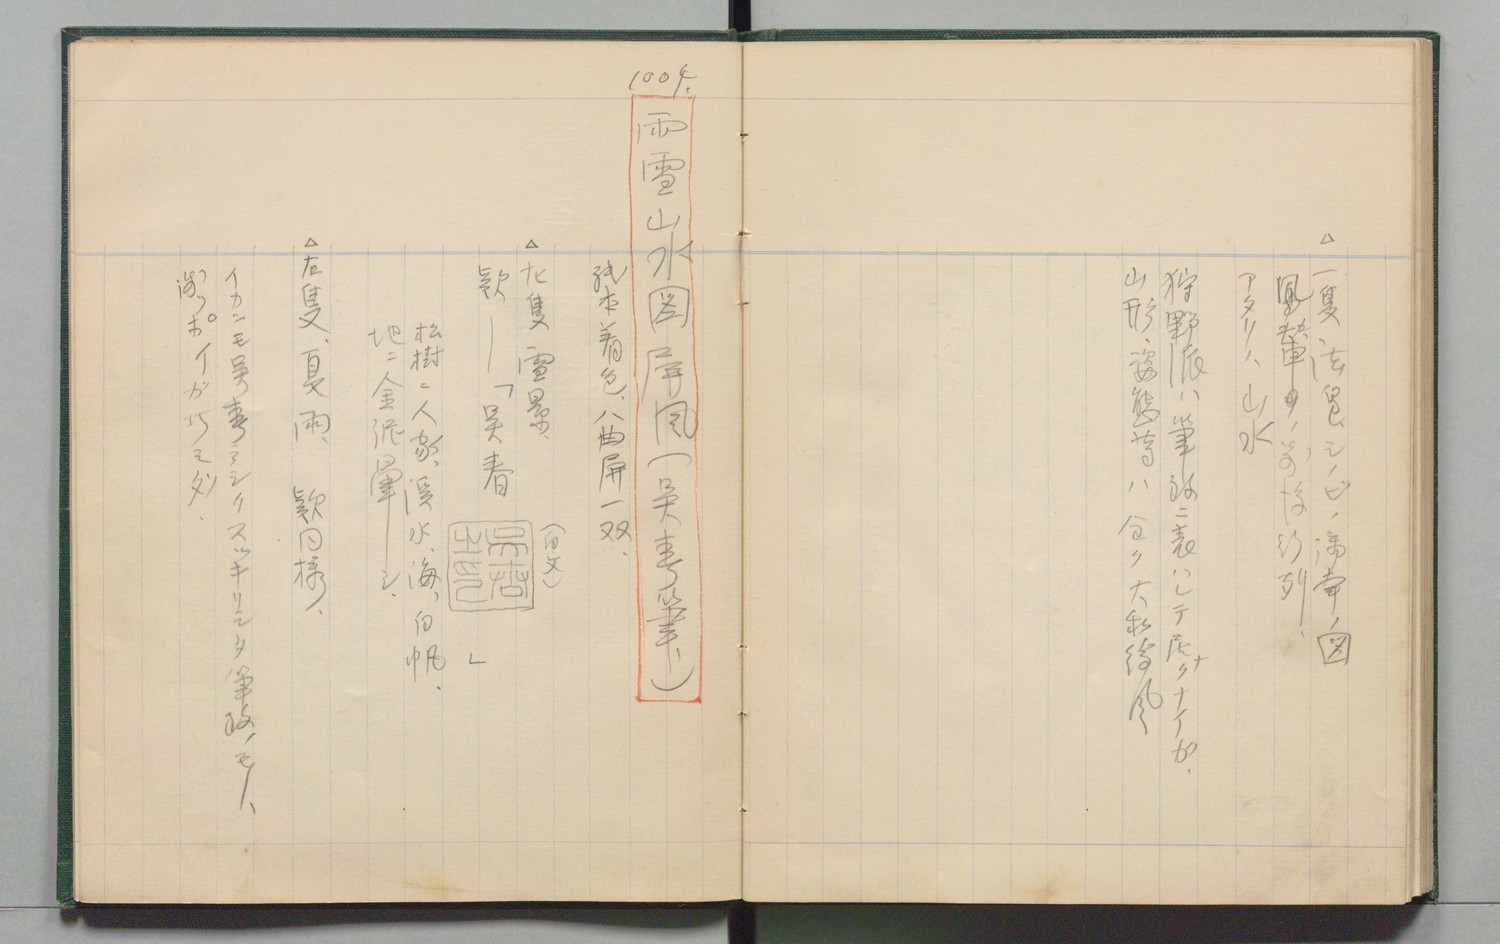 △一隻 法皇、シノビノ御幸ノ図
鳳輦車ノ前後行列、
アタリハ山水
狩野派ハ筆致ニ表ハレテ居ナクナイガ、
山形、姿態等ハ全ク大和絵風
1004.
雨雪山水図屏風(呉春筆)
紙本着色、八曲屏一双、
△左隻 雪景、
款—「呉春
(白文)
呉春之印
」
松樹ニ人家、渓水、海、白帆、
地ニ金泥暈—シ、
△右隻、夏雨、款同様、
イカニモ呉春ラシクスッキリシタ筆致ノモノ、
ガ巧ミダ、